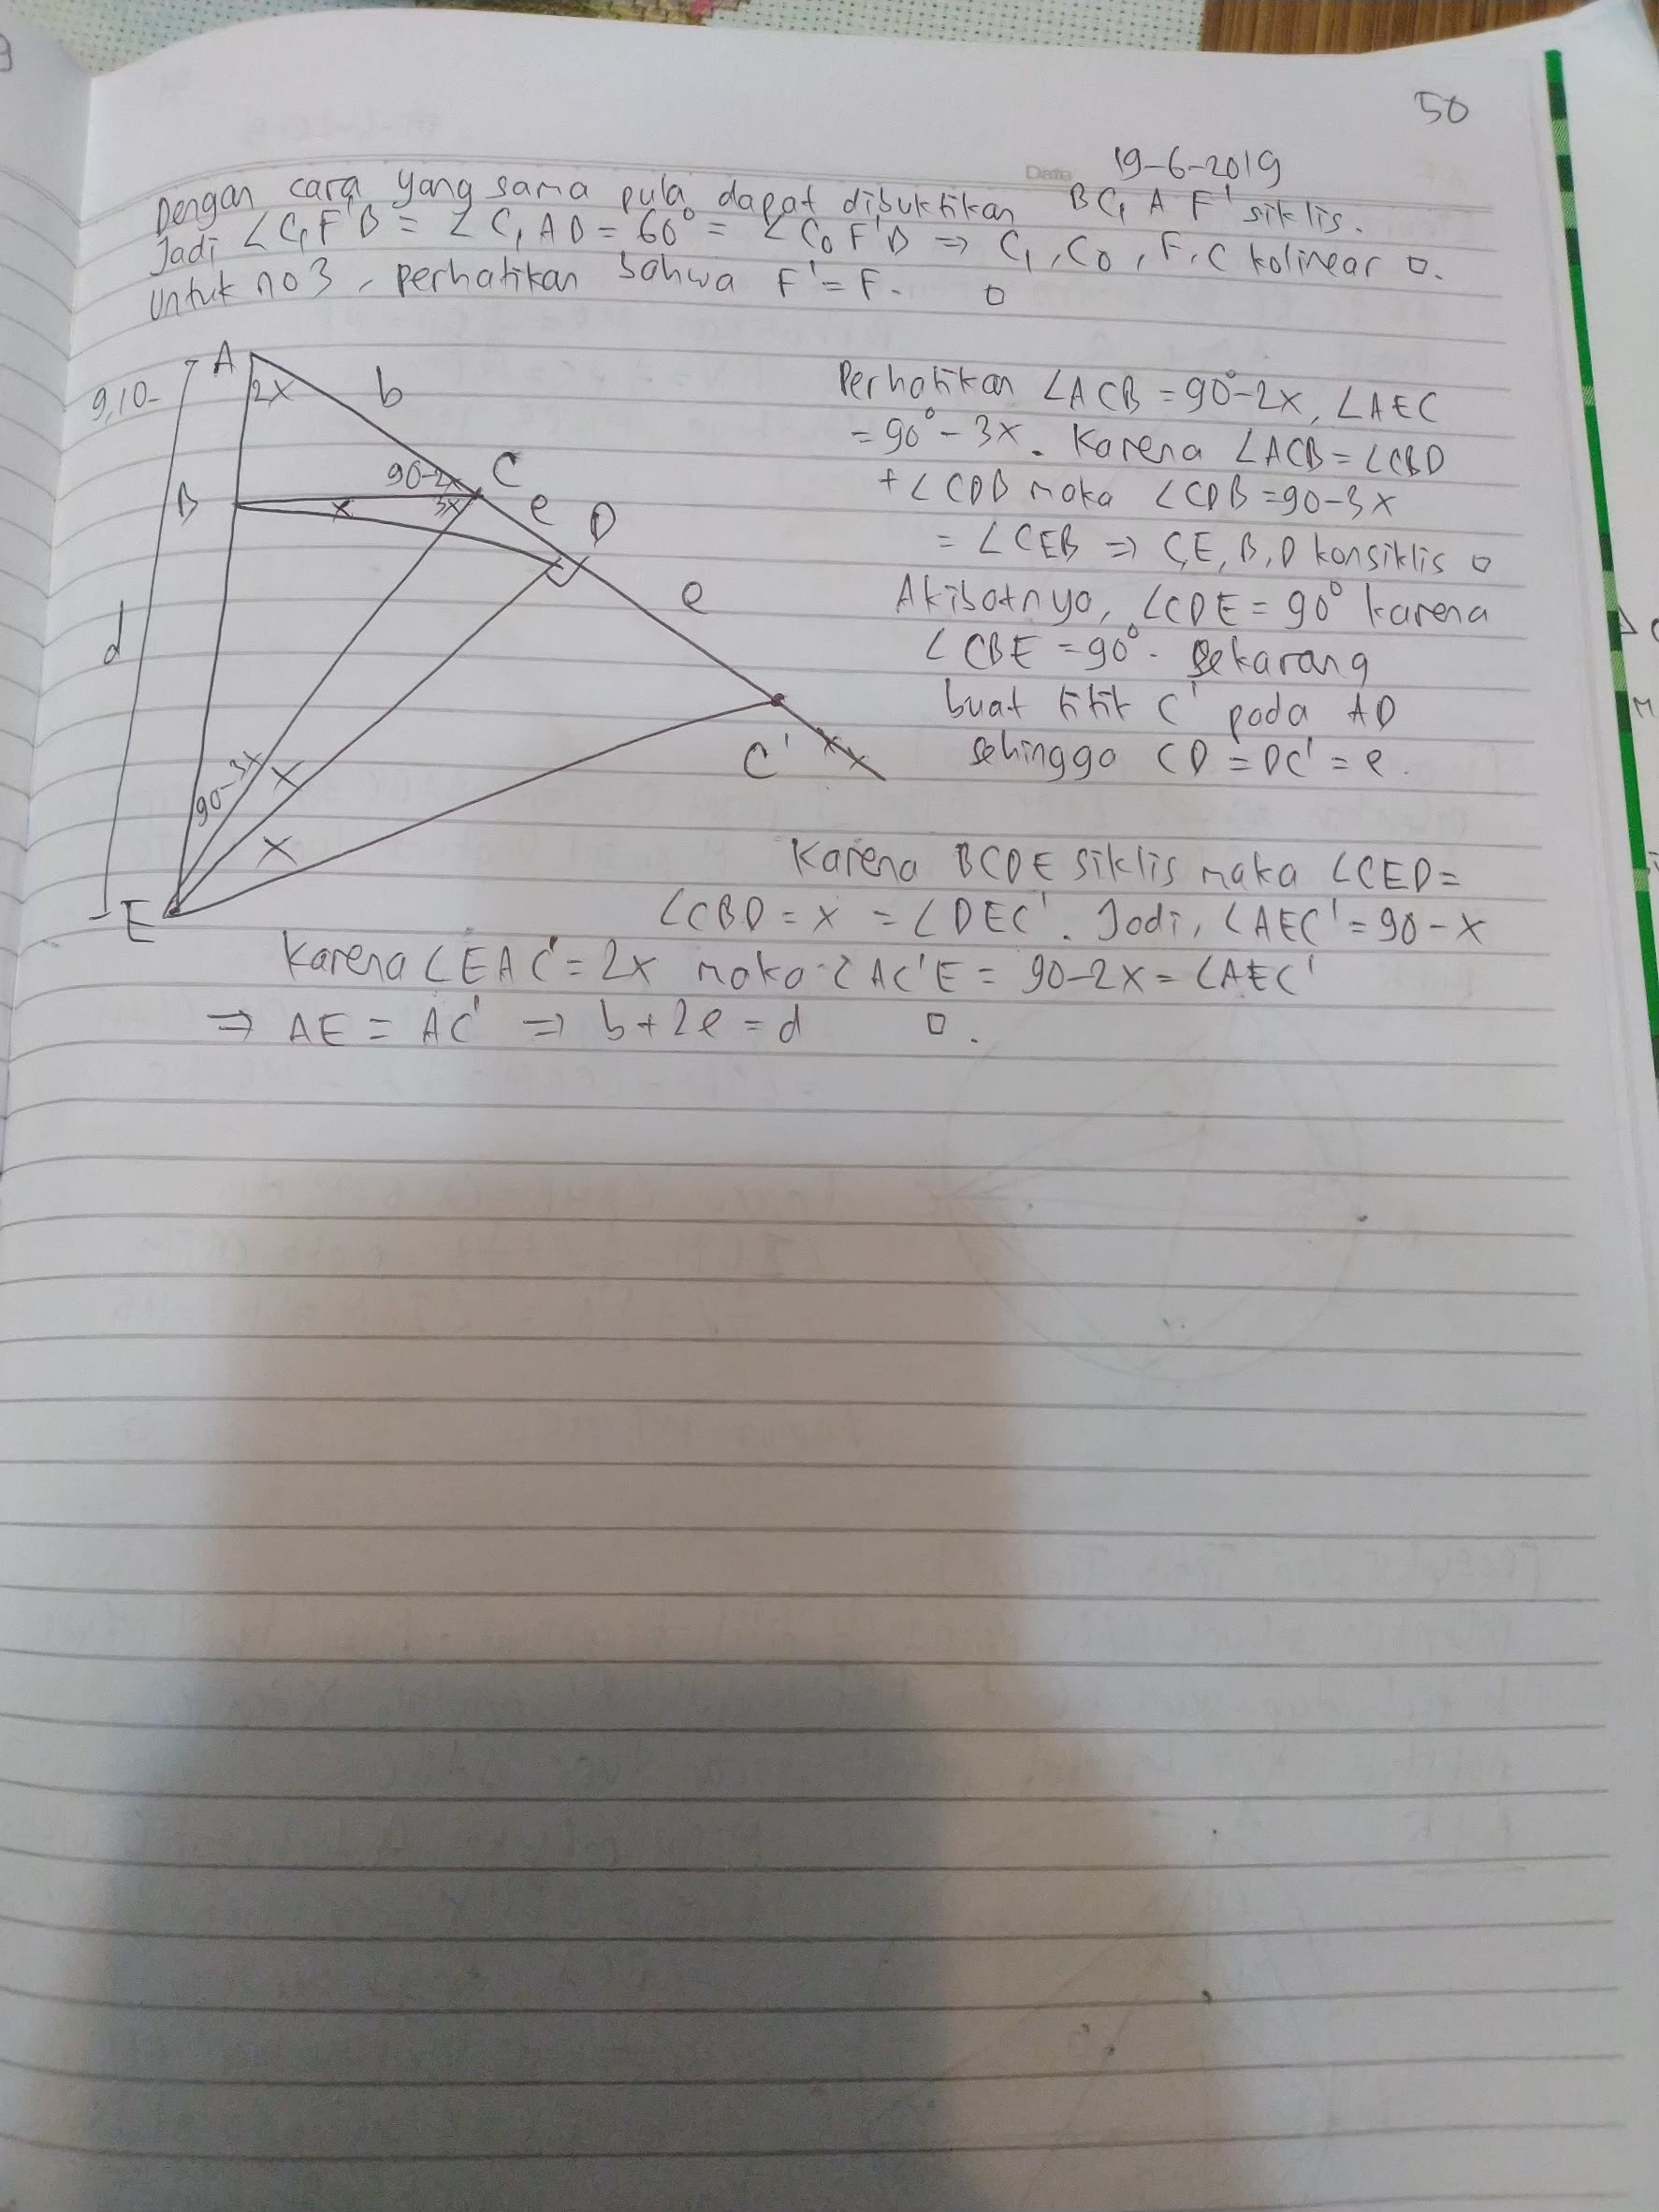 50
Date 19-6-2019
Dengan cara yang sama pula dapat dibuktikan BC₁AF' siklis.
Jadi ∠C₁F'B = ∠C₁AB = 60° = ∠C₀F'B ⇒ C₁, C₀, F, C kolinear □.
Untuk no 3, perhatikan bahwa F' = F. □
9,10-
A
2x
b
90-2x
C
B
x
3x
e
D
e
d
C'
90-3x
x
x
E
Perhatikan ∠ACB = 90°-2x, ∠AEC
= 90° - 3x. Karena ∠ACB = ∠CBD
+ ∠CDB maka ∠CDB = 90-3x
= ∠CEB ⇒ C,E,B,D konsiklis □
Akibatnya, ∠CDE = 90° karena
∠CBE = 90°. Sekarang
buat titik C' pada AD
sehingga CD = DC' = e.
Karena BCDE siklis maka ∠CED =
∠CBD = x = ∠DEC'. Jadi, ∠AEC' = 90-x
Karena ∠EAC' = 2x maka ∠AC'E = 90-2x = ∠AEC'
⇒ AE = AC' ⇒ b+2e = d □.